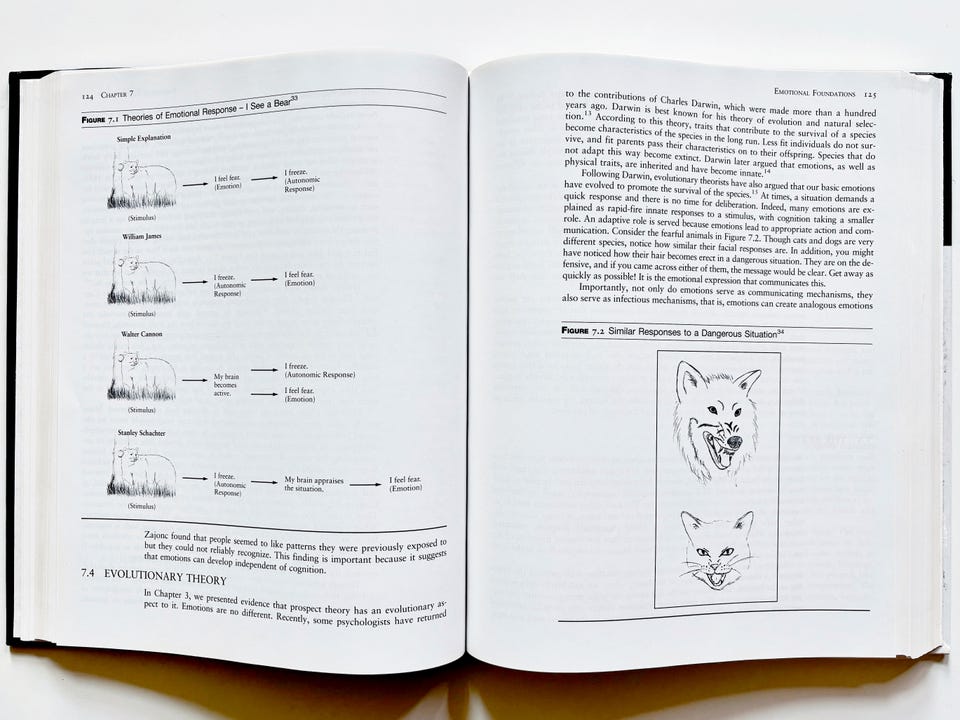 124 CHAPTER 7
FIGURE 7.1 Theories of Emotional Response – I See a Bear33
Simple Explanation
I feel fear.
(Emotion)
I freeze.
(Autonomic
Response)
(Stimulus)
William James
I freeze.
(Autonomic
Response)
I feel fear.
(Emotion)
(Stimulus)
Walter Cannon
My brain
becomes
active.
I freeze.
(Autonomic Response)
I feel fear.
(Emotion)
(Stimulus)
Stanley Schachter
I freeze.
(Autonomic
Response)
My brain appraises
the situation.
I feel fear.
(Emotion)
(Stimulus)
Zajonc found that people seemed to like patterns they were previously exposed to
but they could not reliably recognize. This finding is important because it suggests
that emotions can develop independent of cognition.
7.4 EVOLUTIONARY THEORY
In Chapter 3, we presented evidence that prospect theory has an evolutionary as-
pect to it. Emotions are no different. Recently, some psychologists have returned
EMOTIONAL FOUNDATIONS 125
to the contributions of Charles Darwin, which were made more than a hundred
years ago. Darwin is best known for his theory of evolution and natural selec-
tion.13 According to this theory, traits that contribute to the survival of a species
become characteristics of the species in the long run. Less fit individuals do not sur-
vive, and fit parents pass their characteristics on to their offspring. Species that do
not adapt this way become extinct. Darwin later argued that emotions, as well as
physical traits, are inherited and have become innate.14
Following Darwin, evolutionary theorists have also argued that our basic emotions
have evolved to promote the survival of the species.15 At times, a situation demands a
quick response and there is no time for deliberation. Indeed, many emotions are ex-
plained as rapid-fire innate responses to a stimulus, with cognition taking a smaller
role. An adaptive role is served because emotions lead to appropriate action and com-
munication. Consider the fearful animals in Figure 7.2. Though cats and dogs are very
different species, notice how similar their facial responses are. In addition, you might
have noticed how their hair becomes erect in a dangerous situation. They are on the de-
fensive, and if you came across either of them, the message would be clear. Get away as
quickly as possible! It is the emotional expression that communicates this.
Importantly, not only do emotions serve as communicating mechanisms, they
also serve as infectious mechanisms, that is, emotions can create analogous emotions
FIGURE 7.2 Similar Responses to a Dangerous Situation34